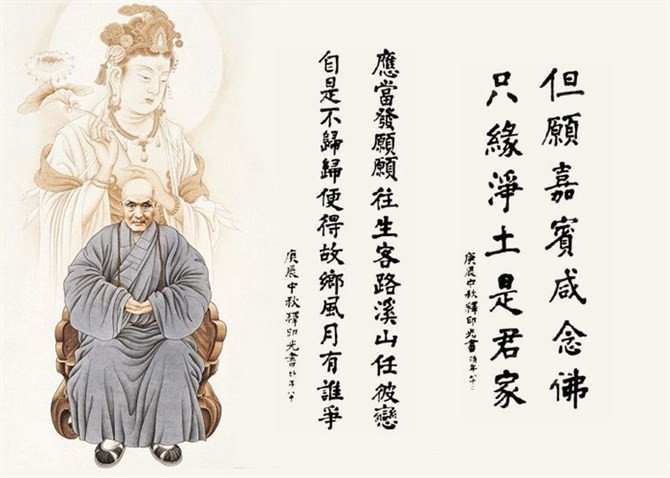 但願嘉賓咸念佛
只緣淨土是君家
庚辰中秋釋印光書
應當發願願往生客路溪山任彼戀
自是不歸歸便得故鄉風月有誰爭
庚辰中秋釋印光書時年八十